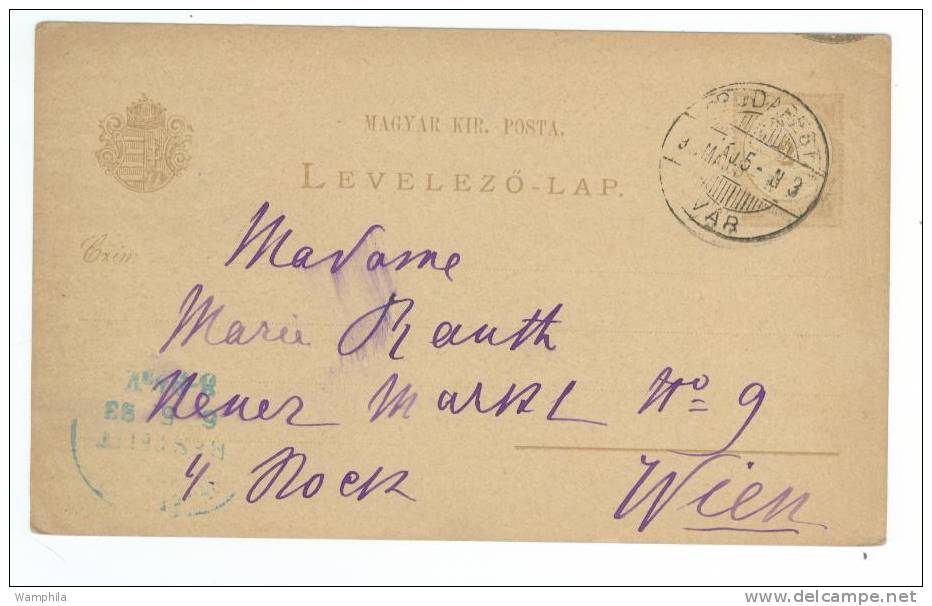 MAGYAR KIR. POSTA.
LEVELEZŐ-LAP.
BUDAPEST
VÁR
Czím
Madame
Marie Rauth
Neuer Markt No 9
4. Stock
Wien
Wamphila
delcampe.net